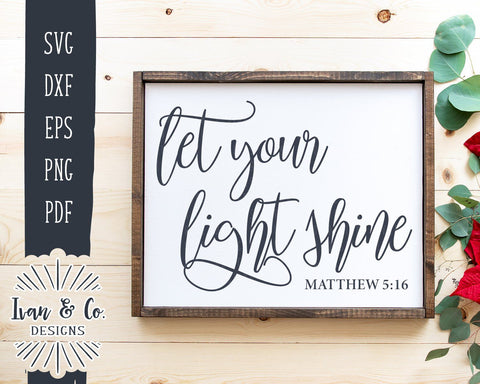 SVG
DXF
EPS
PNG
PDF
let your
light shine
MATTHEW 5:16
Ivan & Co.
DESIGNS